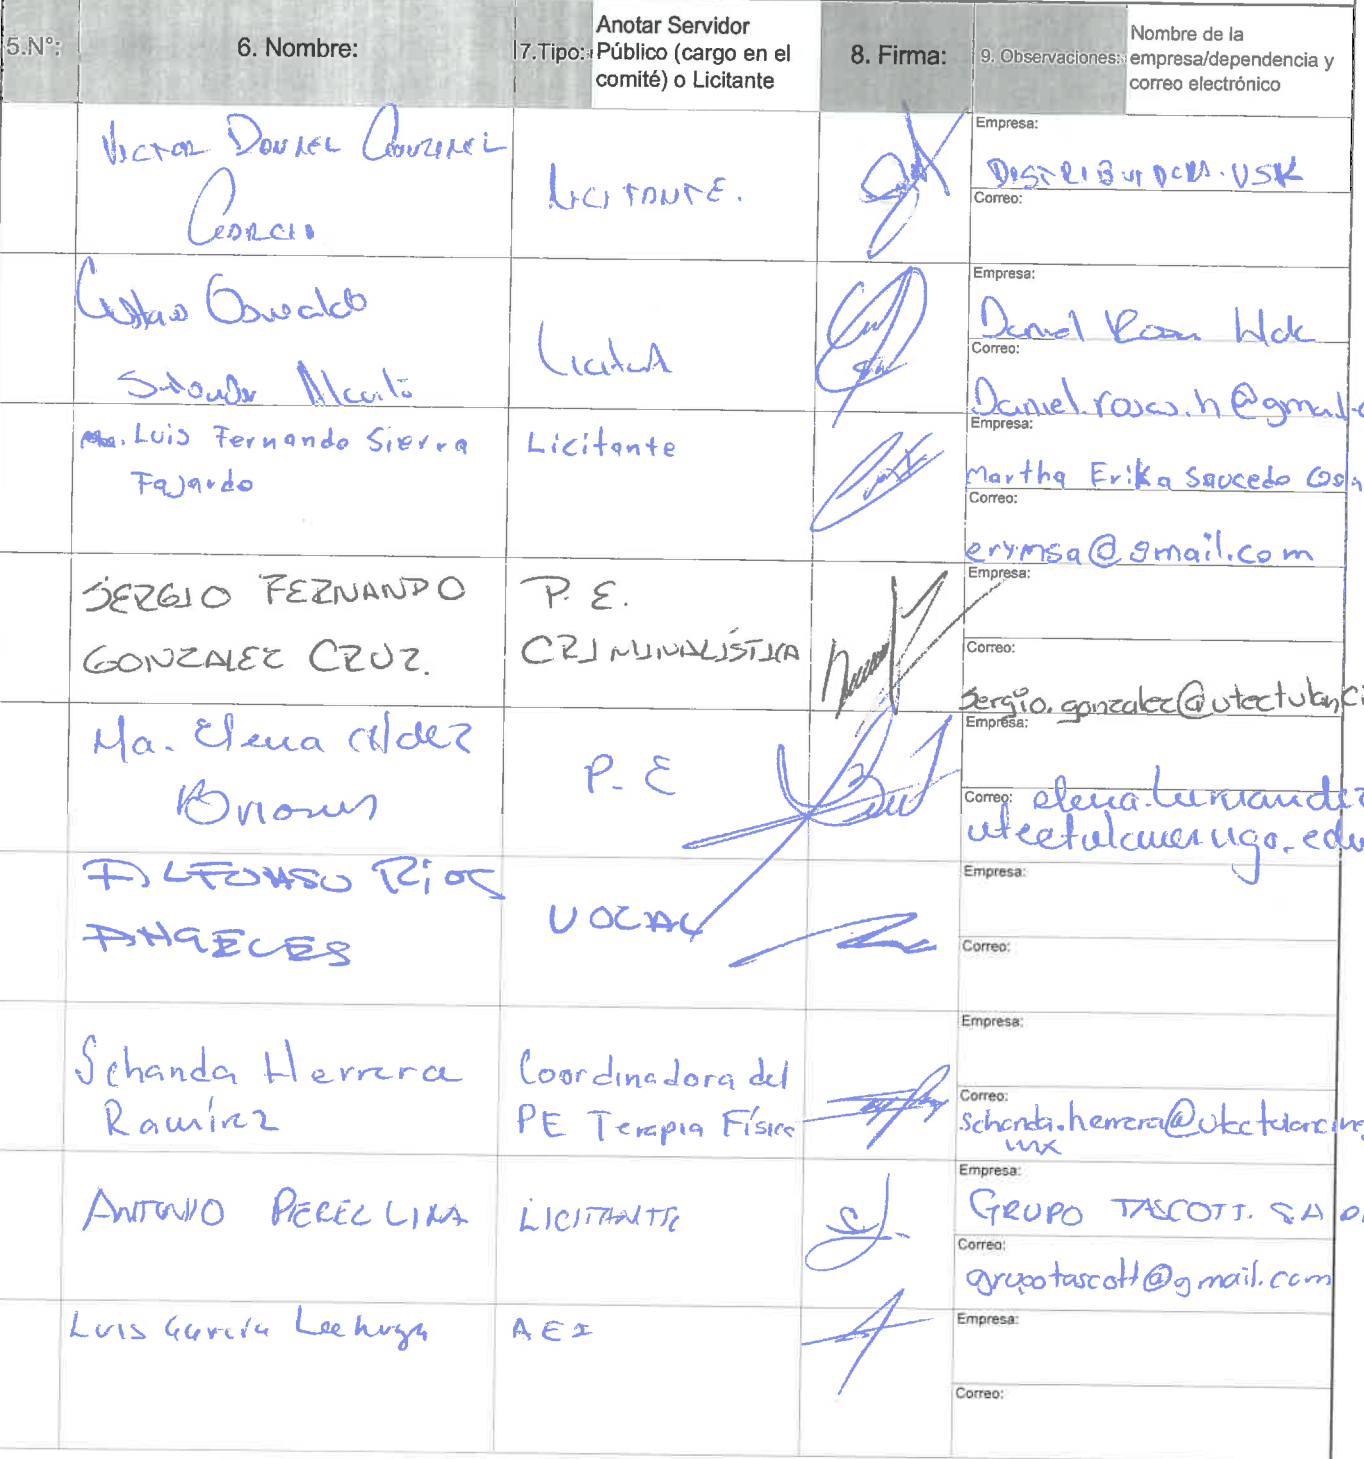 5.N°:
6. Nombre:
7.Tipo:
Anotar Servidor
Público (cargo en el
comité) o Licitante
8. Firma:
9. Observaciones:
Nombre de la
empresa/dependencia y
correo electrónico
VICTOR DANIEL GONZALEZ
GARCIA
LICITANTE.
Empresa:
DISTRIBUIDORA USK
Correo:
Gustavo Oswaldo
Licitant
Empresa:
Daniel Rosas
Correo:
Daniel.rosas.h@gmail.c
Luis Fernando Sierra
Fajardo
Licitante
Empresa:
Martha Erika Saucedo
Correo:
erymsa@gmail.com
SERGIO FERNANDO
GONZALEZ CRUZ.
P. E.
CRIMINALÍSTICA
Empresa:
Correo:
sergio.gonzalez@utectulanci
Ma. Elena Hdez
Briones
P. E
Empresa:
Correo: elena.hernandez
utectulancingo.edu
ALFONSO Ríos
ANGELES
VOCAL
Empresa:
Correo:
Schanda Herrera
Ramírez
Coordinadora del
PE Terapia Física
Empresa:
Correo:
schanda.herrera@utectulancing
mx
ANTONIO PEREZ LIRA
LICITANTE
Empresa:
GRUPO TASCOTT. SA D
Correo:
grupotascott@gmail.com
Luis García Lechuga
AEI
Empresa:
Correo: